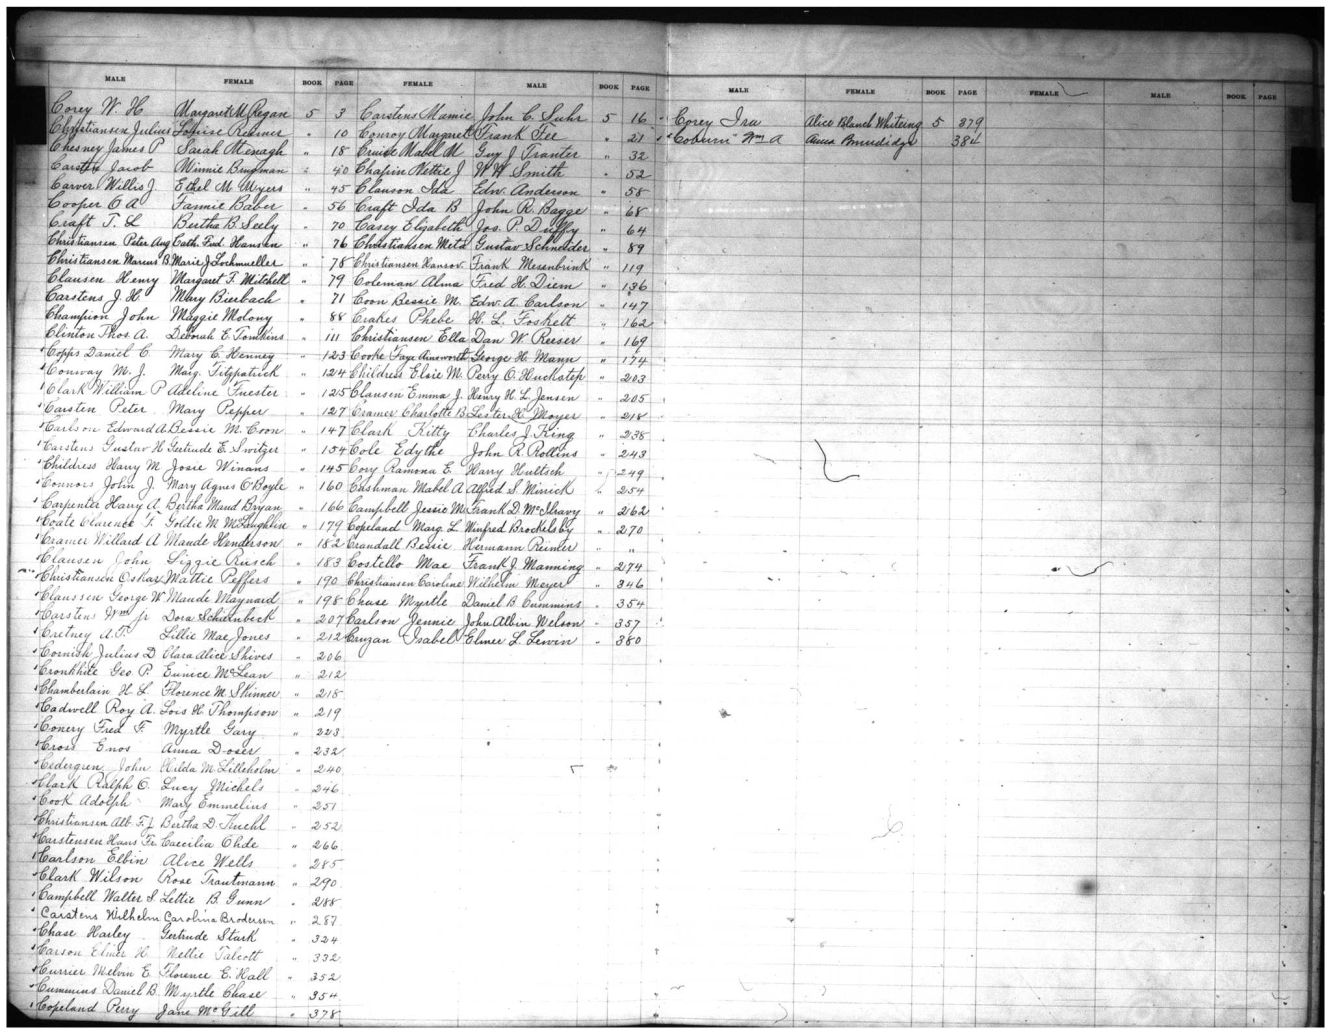 MALE FEMALE BOOK PAGE FEMALE MALE BOOK PAGE MALE FEMALE BOOK PAGE FEMALE MALE BOOK PAGE
Corey W. H Margaret M. Regan 5 3 Carstens Mamie John C. Suhr 5 16 Corey Ira Alice Blanch Whiteing 5 379
Christiansen Julius Louise Reemer " 10 Conroy Margaret Frank Fee " 21 Coburn Wm A Anna 384
Chesney James P Sarah Menagh " 18 Cruise Mabel M Guy J Tranter " 32
Carsten Jacob Minnie Brugman " 40 Chapin Nettie J W W Smith " 52
Carver Willis J. Ethel M Myers " 45 Clauson Ida Edw. Anderson " 58
Cooper O A Fannie Baber " 56 Craft Ida B John R. Bagge " 68
Craft T. L Bertha B. Seely " 70 Casey Elizabeth Jos. P. Duffy " 64
Christiansen Peter Aug Cath. Fred. Hansen " 76 Christiansen Meta Gustav Schneider " 89
Christiansen Marcus B. Marie J Lochmueller " 78 Christiansen Frank Mesenbrink " 119
Clausen Henry Margaret F. Mitchell " 79 Coleman Alma Fred H. Diem " 136
Carstens J. H. Mary Bierbach " 71 Coon Bessie M. Edw. A. Carlson " 147
Champion John Maggie Molony " 88 Crakes Phebe H. L. Foskett " 162
Clinton Thos. A. Deborah E Tomkins " 111 Christiansen Ella Dan W. Reeser " 169
Copps Daniel C. Mary C. Henney " 123 Cooke Faye Ainsworth George H. Mann " 174
Conway M. J. Marg. Fitzpatrick " 124 Childress Elsie M. Perry O. Huckstep " 203
Clark William P Adeline Fuester " 125 Clausen Emma J. Henry H. L. Jensen " 205
Carsten Peter. Mary Pepper " 127 Cramer Charlotte B Lester H Moyer " 218
Carlson Edward A. Bessie M. Coon " 147 Clark Kitty Charles J. King " 238
Carstens Gustav H Gertrude E. Switzer " 154 Cole Edythe John R. Rollins " 243
Childress Harry M Josie Winans " 145 Cory Ramona E. Harry Hultsch " 249
Connors John J. Mary Agnes O'Boyle " 160 Cushman Mabel A Alfred S. Mirrick " 254
Carpenter Harry A. Bertha Maud Bryan " 166 Campbell Jessie M. Frank D. McIlravy " 262
Coate Clarence F. Goldie M. McLaughlin " 179 Copeland Marg. L Winfred Brockelsby " 270
Cramer Willard A Maude Henderson " 182 Crandall Bessie Hermann Reimer " "
Clausen John Lizzie Rusch " 183 Costello Mae Frank J. Manning " 274
Christiansen Oskar Mattie Peffers " 190 Christiansen Caroline Wilhelm Meyer " 346
Claussen George W Maude Maynard " 198 Chase Myrtle Daniel B Cummins " 354
Carstens Wm Jr Dora Schiernbeck " 207 Carlson Jennie John Albin Nelson " 357
Cretney A. T. Lillie Mae Jones " 212 Cruzan Isabel Elmer L. Lewin " 380
Cornish Julius D Clara Alice Shives " 206
Cronkhite Geo P. Eunice McLean " 212
Chamberlain H. L. Florence M Skinner " 218
Cadwell Roy A. Lois H. Thompson " 219
Conery Fred F. Myrtle Gary " 223
Cross Enos Anna Doser " 232
Cedergren John Hilda M. Lilleholm " 240
Clark Ralph O. Lucy Michels " 246
Cook Adolph Mary Emmelius " 251
Christiansen Alb. F. J. Bertha D. Kuehl " 252
Carstensen Hans Fr. Caecilia Ohde " 266
Carlson Elbin Alice Wells " 285
Clark Wilson Rose Trautmann " 290
Campbell Walter S. Lettie B. Gunn " 288
Carstens Wilhelm Carolina Brodersen " 287
Chase Harley Gertrude Stark " 324
Carson Elmer H Nellie Talcott " 332
Currier Melvin E Florence E. Hall " 352
Cummins Daniel B. Myrtle Chase " 354
Copeland Perry Jane McGill " 378